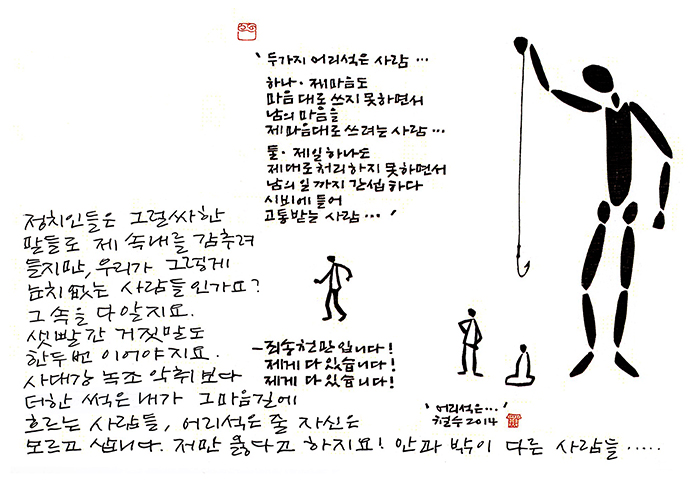 '두가지 어리석은 사람…
하나·제마음도
마음대로 쓰지 못하면서
남의 마음을
제마음대로 쓰려는 사람…
둘·제일 하나도
제대로 처리하지 못하면서
남의 일까지 간섭하다
시비에 들어
고통받는 사람…'
정치인들은 그럴싸한
말들로 제 속내를 감추려
들지만, 우리가 그렇게
눈치 없는 사람들인가요?
그 속을 다 알지요.
샛빨간 거짓말도
한두번 이어야지요.
사대강 녹조 악취보다
더한 썩은내가 그마음길에
흐르는 사람들, 어리석은 줄 자신은
모르고 삽니다. 저만 옳다고 하지요! 안과 밖이 다른 사람들.....
-죄송천만입니다!
제게 다 있습니다!
제게 다 있습니다!
'어리석은…'
철수 2014